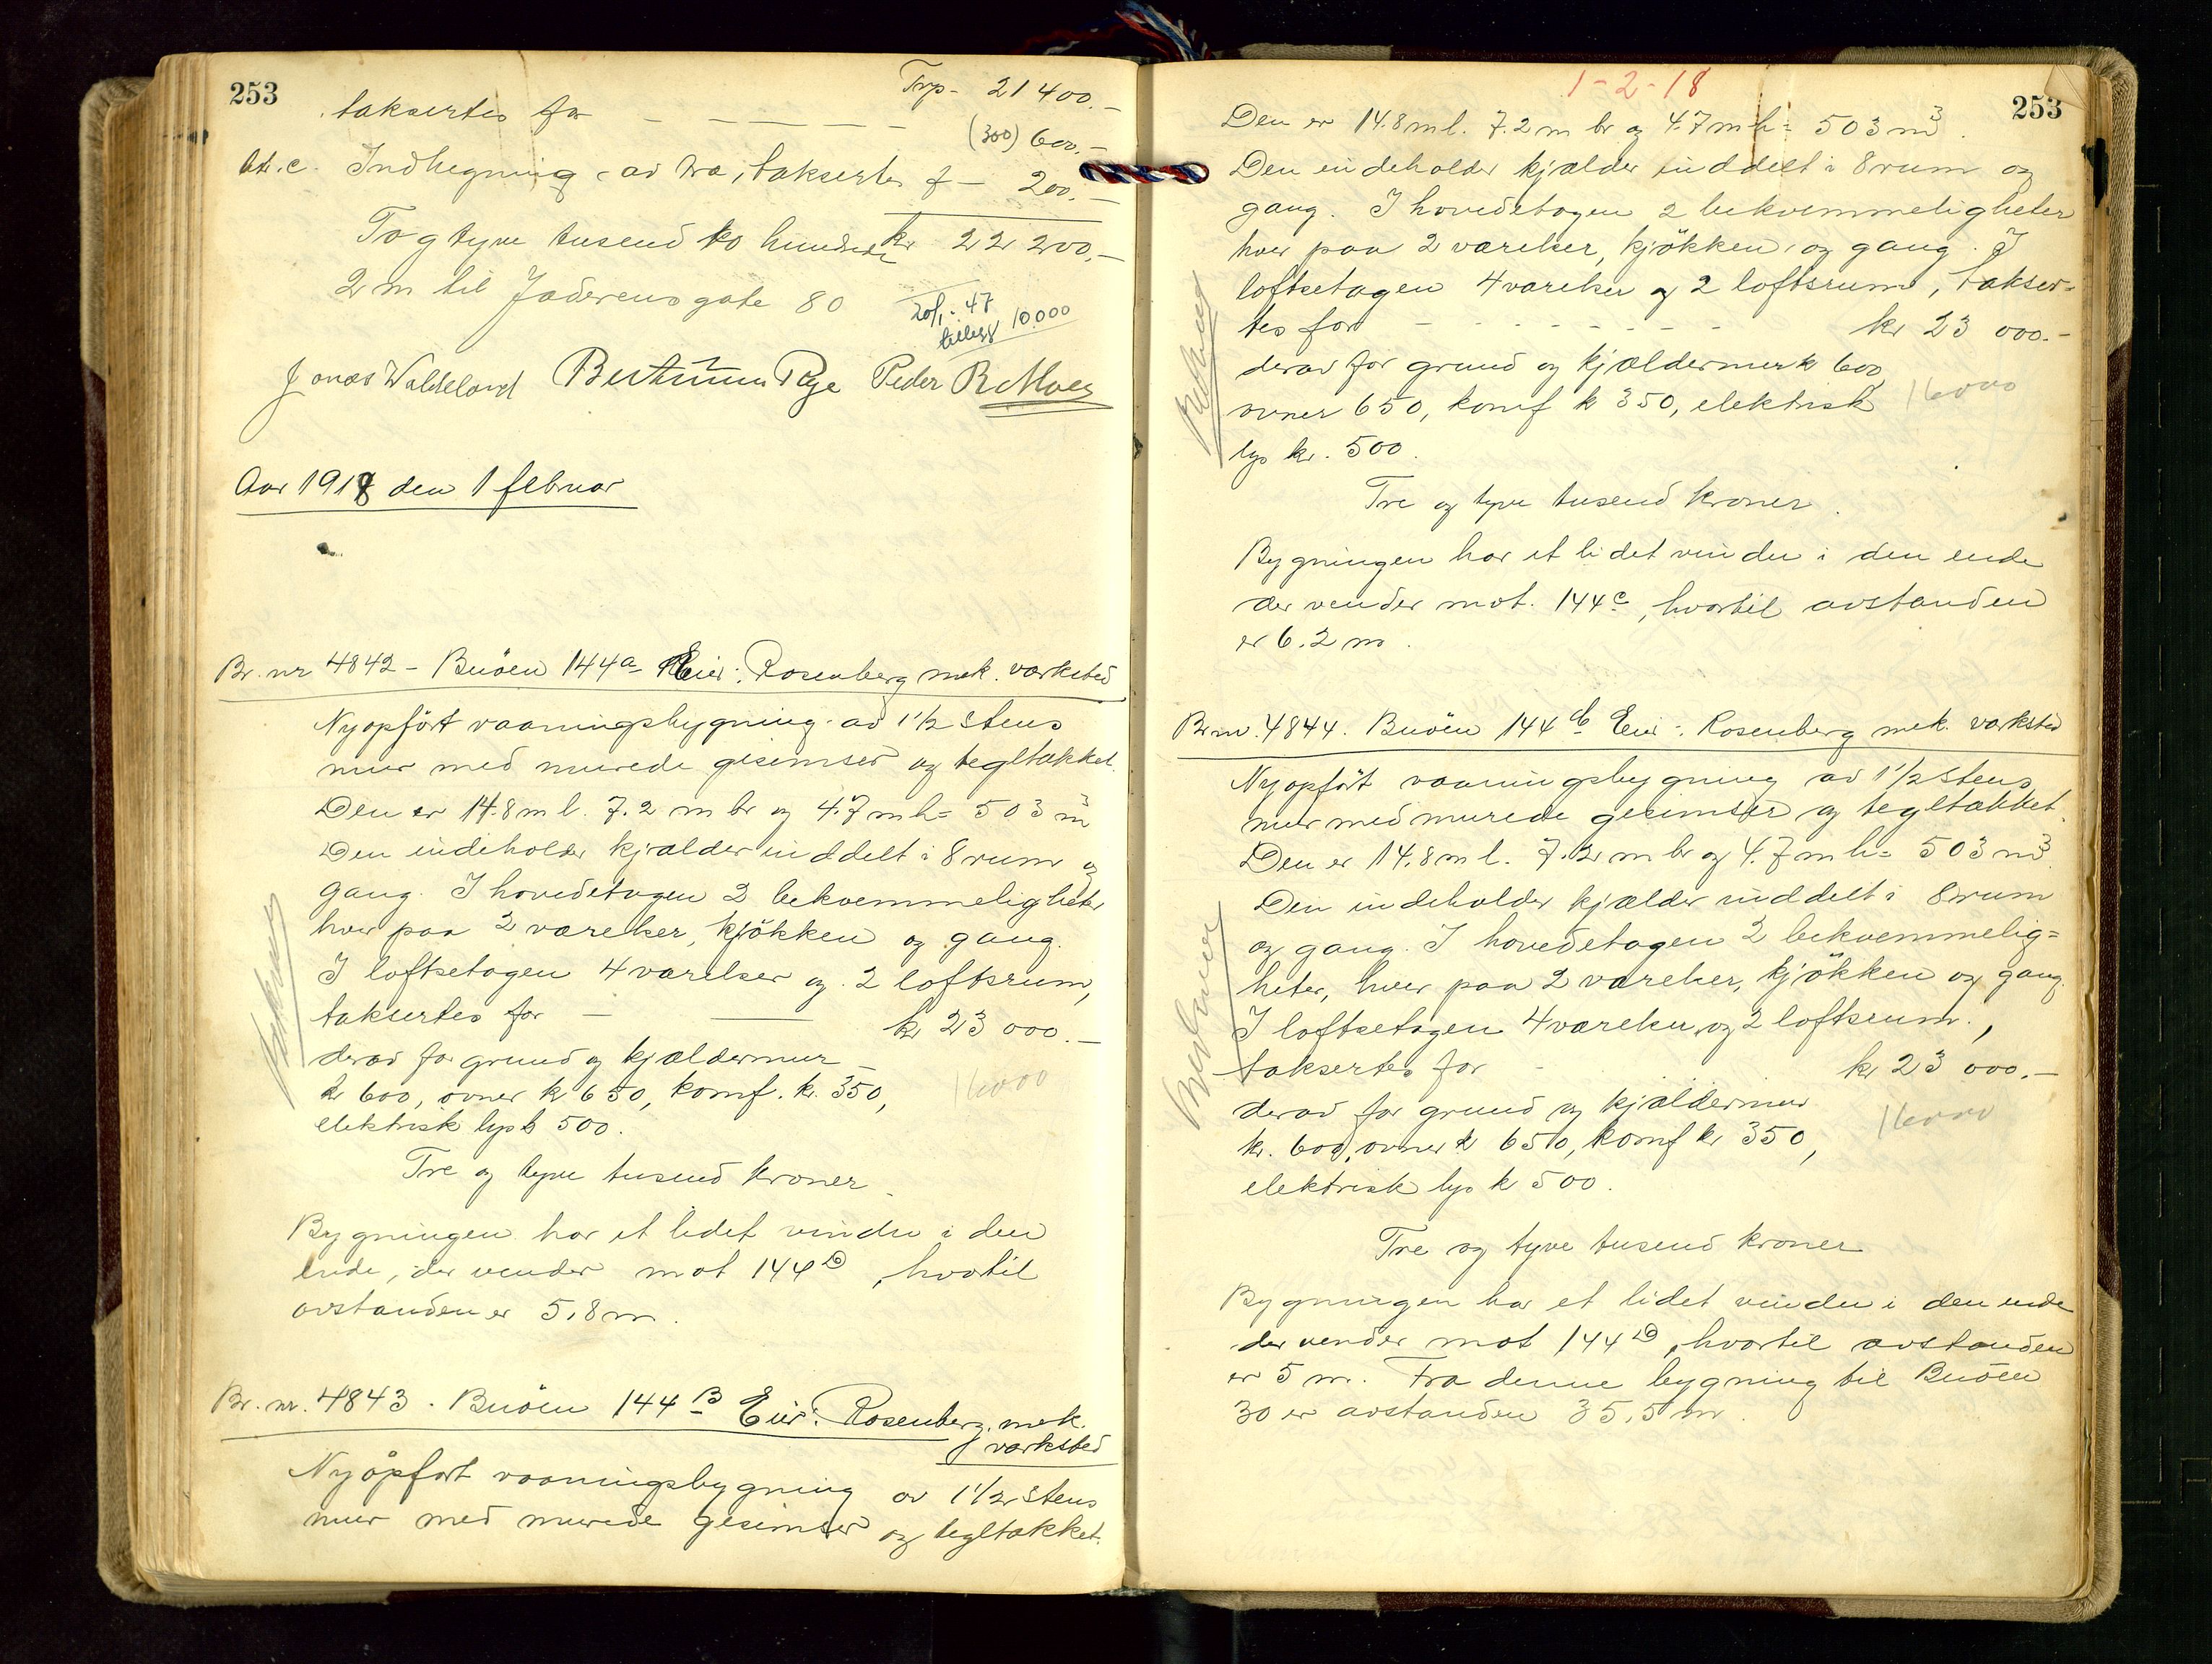 253
Trp- 21 400.-
taksertes for
(300) 600.-
Lit. c. Indhegning av træ, taksertes f - 200.-
To og tyve tusend to hundrede kr 22 200.-
2 m til Jaderens gate 80
20/1 - 47
tillegg 10.000
Jonas Waldeland Peder
Aar 1918 den 1 februar
Br. nr 4842 - Buöen 144a Eier: Rosenberg mek. værksted
Nyopfört vaaningsbygning av 1 1/2 stens
mur med murede gesimser og tegltækket.
Den er 14.8 m l. 7.2 m br og 4.7 m h = 503 m3
Den indeholder kjælder inddelt i 8 rum og
gang. I hovedetagen 2 bekvemmeligheter
hver paa 2 værelser, kjökken og gang.
I loftsetagen 4 værelser og 2 loftsrum,
taksertes for - kr 23 000.-
derav for grund og kjældermur
kr 600, ovner kr 650, komf. kr. 350,
16000
elektrisk lys kr 500.
Tre og tyve tusend kroner.
Bygningen har et lidet vindu i den
ende, der vender mot 144D, hvortil
avstanden er 5,8 m.
Br. nr. 4843. Buöen 144B Eier: Rosenberg mek.
værksted
Nyopført vaaningsbygning av 1 1/2 stens
mur med murede gesimser og tegltækket.
1-2-18
253
Den er 14.8 m l. 7.2 m br og 4.7 m h = 503 m3.
Den indeholder kjælder inddelt i 8 rum og
gang. I hovedetagen 2 bekvemmeligheter
hver paa 2 værelser, kjökken og gang. I
loftsetagen 4 værelser og 2 loftsrum, takser=
tes for kr 23 000.-
derav for grund og kjældermurk 600
ovner 650, komf k 350, elektrisk
16000
lys kr. 500.
Tre og tyve tusend kroner.
Bygningen har et lidet vindu i den ende
der vender mot. 144c, hvortil avstanden
er 6.2 m.
Br nr. 4844. Buöen 144C Eier: Rosenberg mek. værksted
Nyopfört vaaningsbygning av 1 1/2 stens
mur med murede gesimser og tegltækket.
Den er 14,8 m l. 7.2 m br og 4.7 m h = 503 m3.
Den indeholder kjælder inddelt i 8 rum
og gang. I hovedetagen 2 bekvemmelig=
heter, hver paa 2 værelser, kjökken og gang.
I loftsetagen 4 værelser og 2 loftsrum.,
taksertes for - kr 23 000.-
derav for grund og kjældermur
16000
kr. 600, ovner k 650, komf kr 350,
elektrisk lys k 500.
Tre og tyve tusend kroner
Bygningen har et lidet vindu i den ende
der vender mot 144D, hvortil avstanden
er 5 m. Fra denne bygning til Buöen
30 er avstanden 35,5 m.